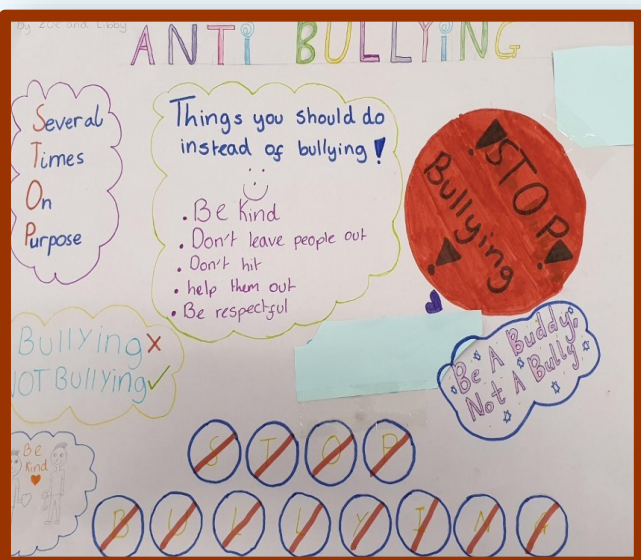 By Zoe and Libby
ANTi BULLYiNG
Several
Times
On
Purpose
Things you should do
instead of bullying!
• Be Kind
• Don't leave people out
• Don't hit
• help them out
• Be respectful
! STOP !
Bullying !
Bullying X
NOT Bullying ✓
Be A Buddy,
Not A Bully.
Be
Kind
S T O P
B U L L Y I N G